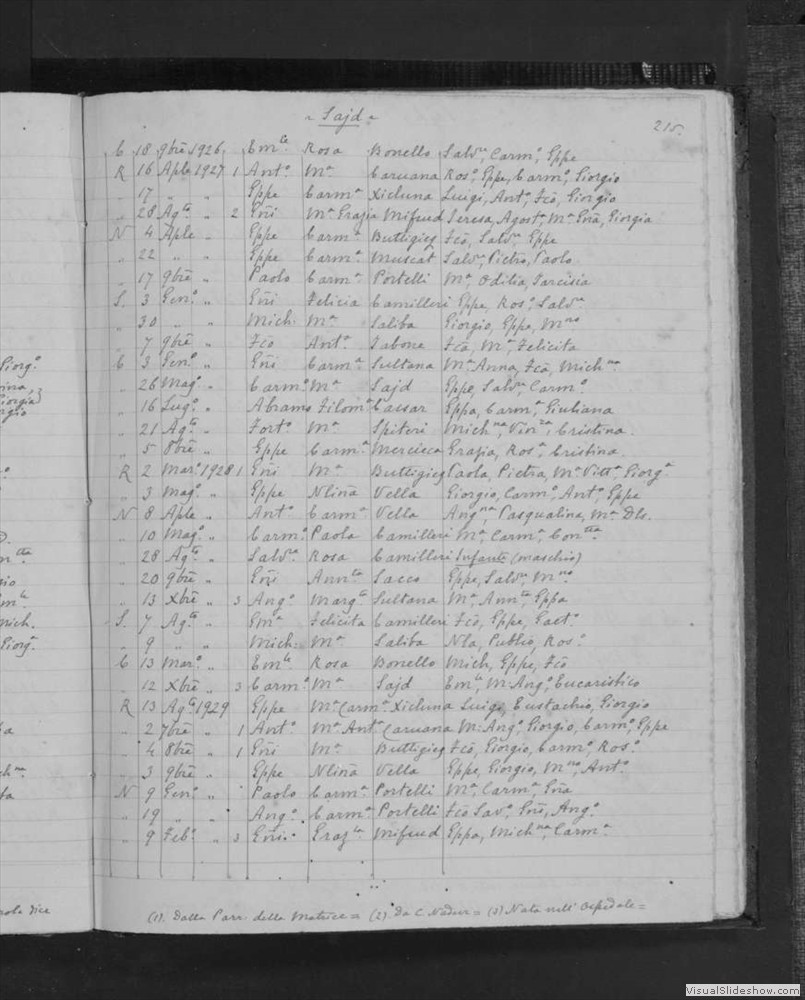 ~ Sajd ~
215.
C 18 9bre 1926. Em.le Rosa Bonello Salv.u, Carm.o, Eppe
R 16 Aple 1927 1 Ant.o M.a Caruana Ros.o, Eppe, Carm.o, Giorgio
" 17 " " Eppe Carm.a Xicluna Luigi, Ant.o, Fco, Giorgio
" 28 Ag.to " 2 Gñi M.a Grazia Mifsud Teresa, Agost.a, M.a Gña, Giorgia
N 4 Aple " Eppe Carm.a Buttigieg Fco, Salv.u, Eppe
" 22 " " Eppe Carm.a Muscat Salv.u, Pietro, Paolo
" 17 9bre " Paolo Carm.a Portelli M.a, Odilia, Tarcisia
S. 3 Gen.o " Gñi Felicia Camilleri Eppe, Ros.o, Salv.u
" 30 " " Mich. M.a Saliba Giorgio, Eppe, M.no
" 7 9bre " Fco Ant.a Tabone Fca, M.a, Felicita
C 3 Gen.o " Gñi Carm.a Sultana M.a Anna, Fca, Mich.na
" 26 Mag.o " Carm.o M.a Sajd Eppe, Salv.u, Carm.o
" 16 Lug.o " Abramo Filom.a Cassar Eppa, Carm.a, Giuliana
" 21 Ag.to " Fort.o M.a Spiteri Mich.na, Vin.za, Cristina
" 5 8bre " Eppe Carm.a Mercieca Grazia, Ros.a, Cristina
R 2 Mar.o 1928 1 Gñi M.a Buttigieg Paola, Pietra, M.a Vitt.a, Giorg.a
" 3 Mag.o " Eppe Nlina Vella Giorgio, Carm.o, Ant.o, Eppe
N 8 Aple " Ant.o Carm.a Vella Ang.na, Pasqualina, M.a Dls.
" 10 Mag.o " Carm.o Paola Camilleri M.a, Carm.a, Con.tta
" 28 Ag.to " Salv.u Rosa Camilleri Infante (maschio)
" 20 9bre " Gñi Ann.ta Sacco Eppe, Salv.u, M.no
" 13 Xbre " 3 Ang.o Marg.ta Sultana M.a, Ann.ta, Eppa
S. 7 Ag.to " Felicita Camilleri Fco, Eppe, Gaet.o
" 9 " " Mich. M.a Saliba Nla, Publio, Ros.o
C 13 Mar.o " Em.le Rosa Bonello Mich, Eppe, Fco
" 12 Xbre " 3 Carm.o M.a Sajd Em.le, M. Ang.o, Eucaristico
R 13 Ag.to 1929 Eppe M.a Carm.a Xicluna Luigi, Eustachio, Giorgio
" 2 7bre " 1 Ant.o M.a Ant.a Caruana M. Ang.o, Giorgio, Carm.o, Eppe
" 4 8bre " 1 Gñi M.a Buttigieg Fco, Giorgio, Carm.o, Ros.o
" 3 9bre " Eppe Nlina Vella Eppe, Giorgio, M.no, Ant.o
N 9 Gen.o " Paolo Carm.a Portelli M.a, Carm.a, Gña
" 19 " " Ang.o Carm.a Portelli Fco Sav.o, Gñi, Ang.o
" 9 Feb.o " 3 Gñi Graz.la Mifsud Eppa, Mich.na, Carm.a
(1). Dalla Parr. della Matrice = (2). Da C. Nadur = (3) Nata nell' Ospedale =
VisualSlideshow.com